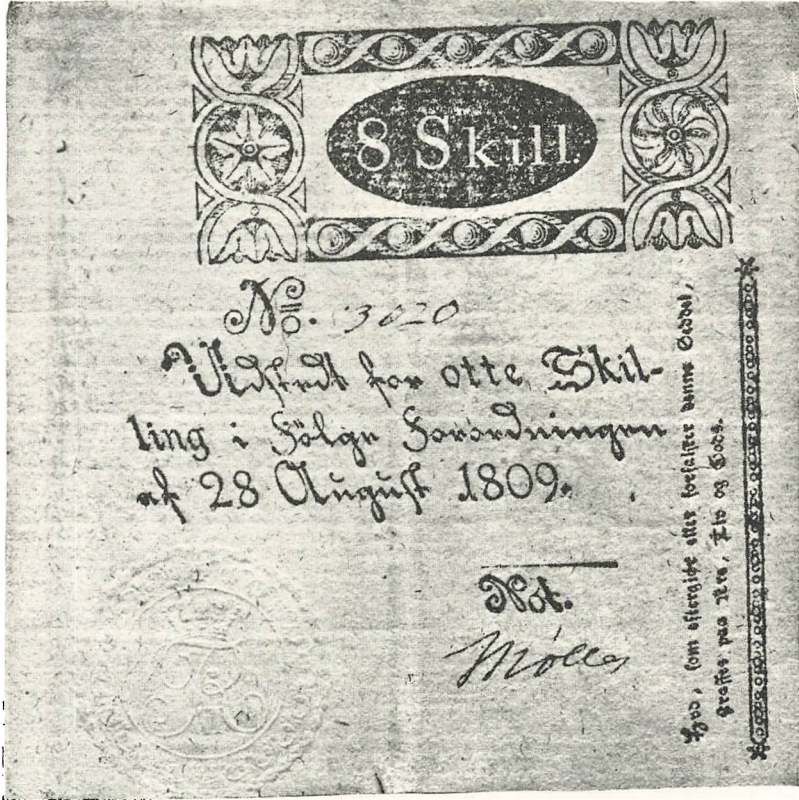 8 Skill.
No. 3020
Udstedt for otte Skil-
ling i Fölge Forordningen
af 28 August 1809.
Not.
Møller
Hvo, som eftergiør eller forfalsker denne Seddel,
straffes paa Ære, Liv og Gods.